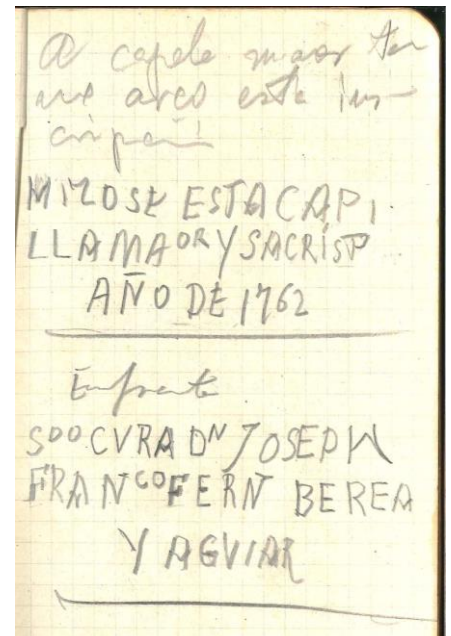 A capela maor ten
no arco esta ins-
cripción
MIZOSE ESTA CAPI
LLAMAᴼᴿ Y SACRISᵀᴬ
AÑO DE 1762
Enfrente
SDᴼ CVRA Dᴺ JOSEPH
FRANᶜᴼ FERN BEREA
Y AGVIAR